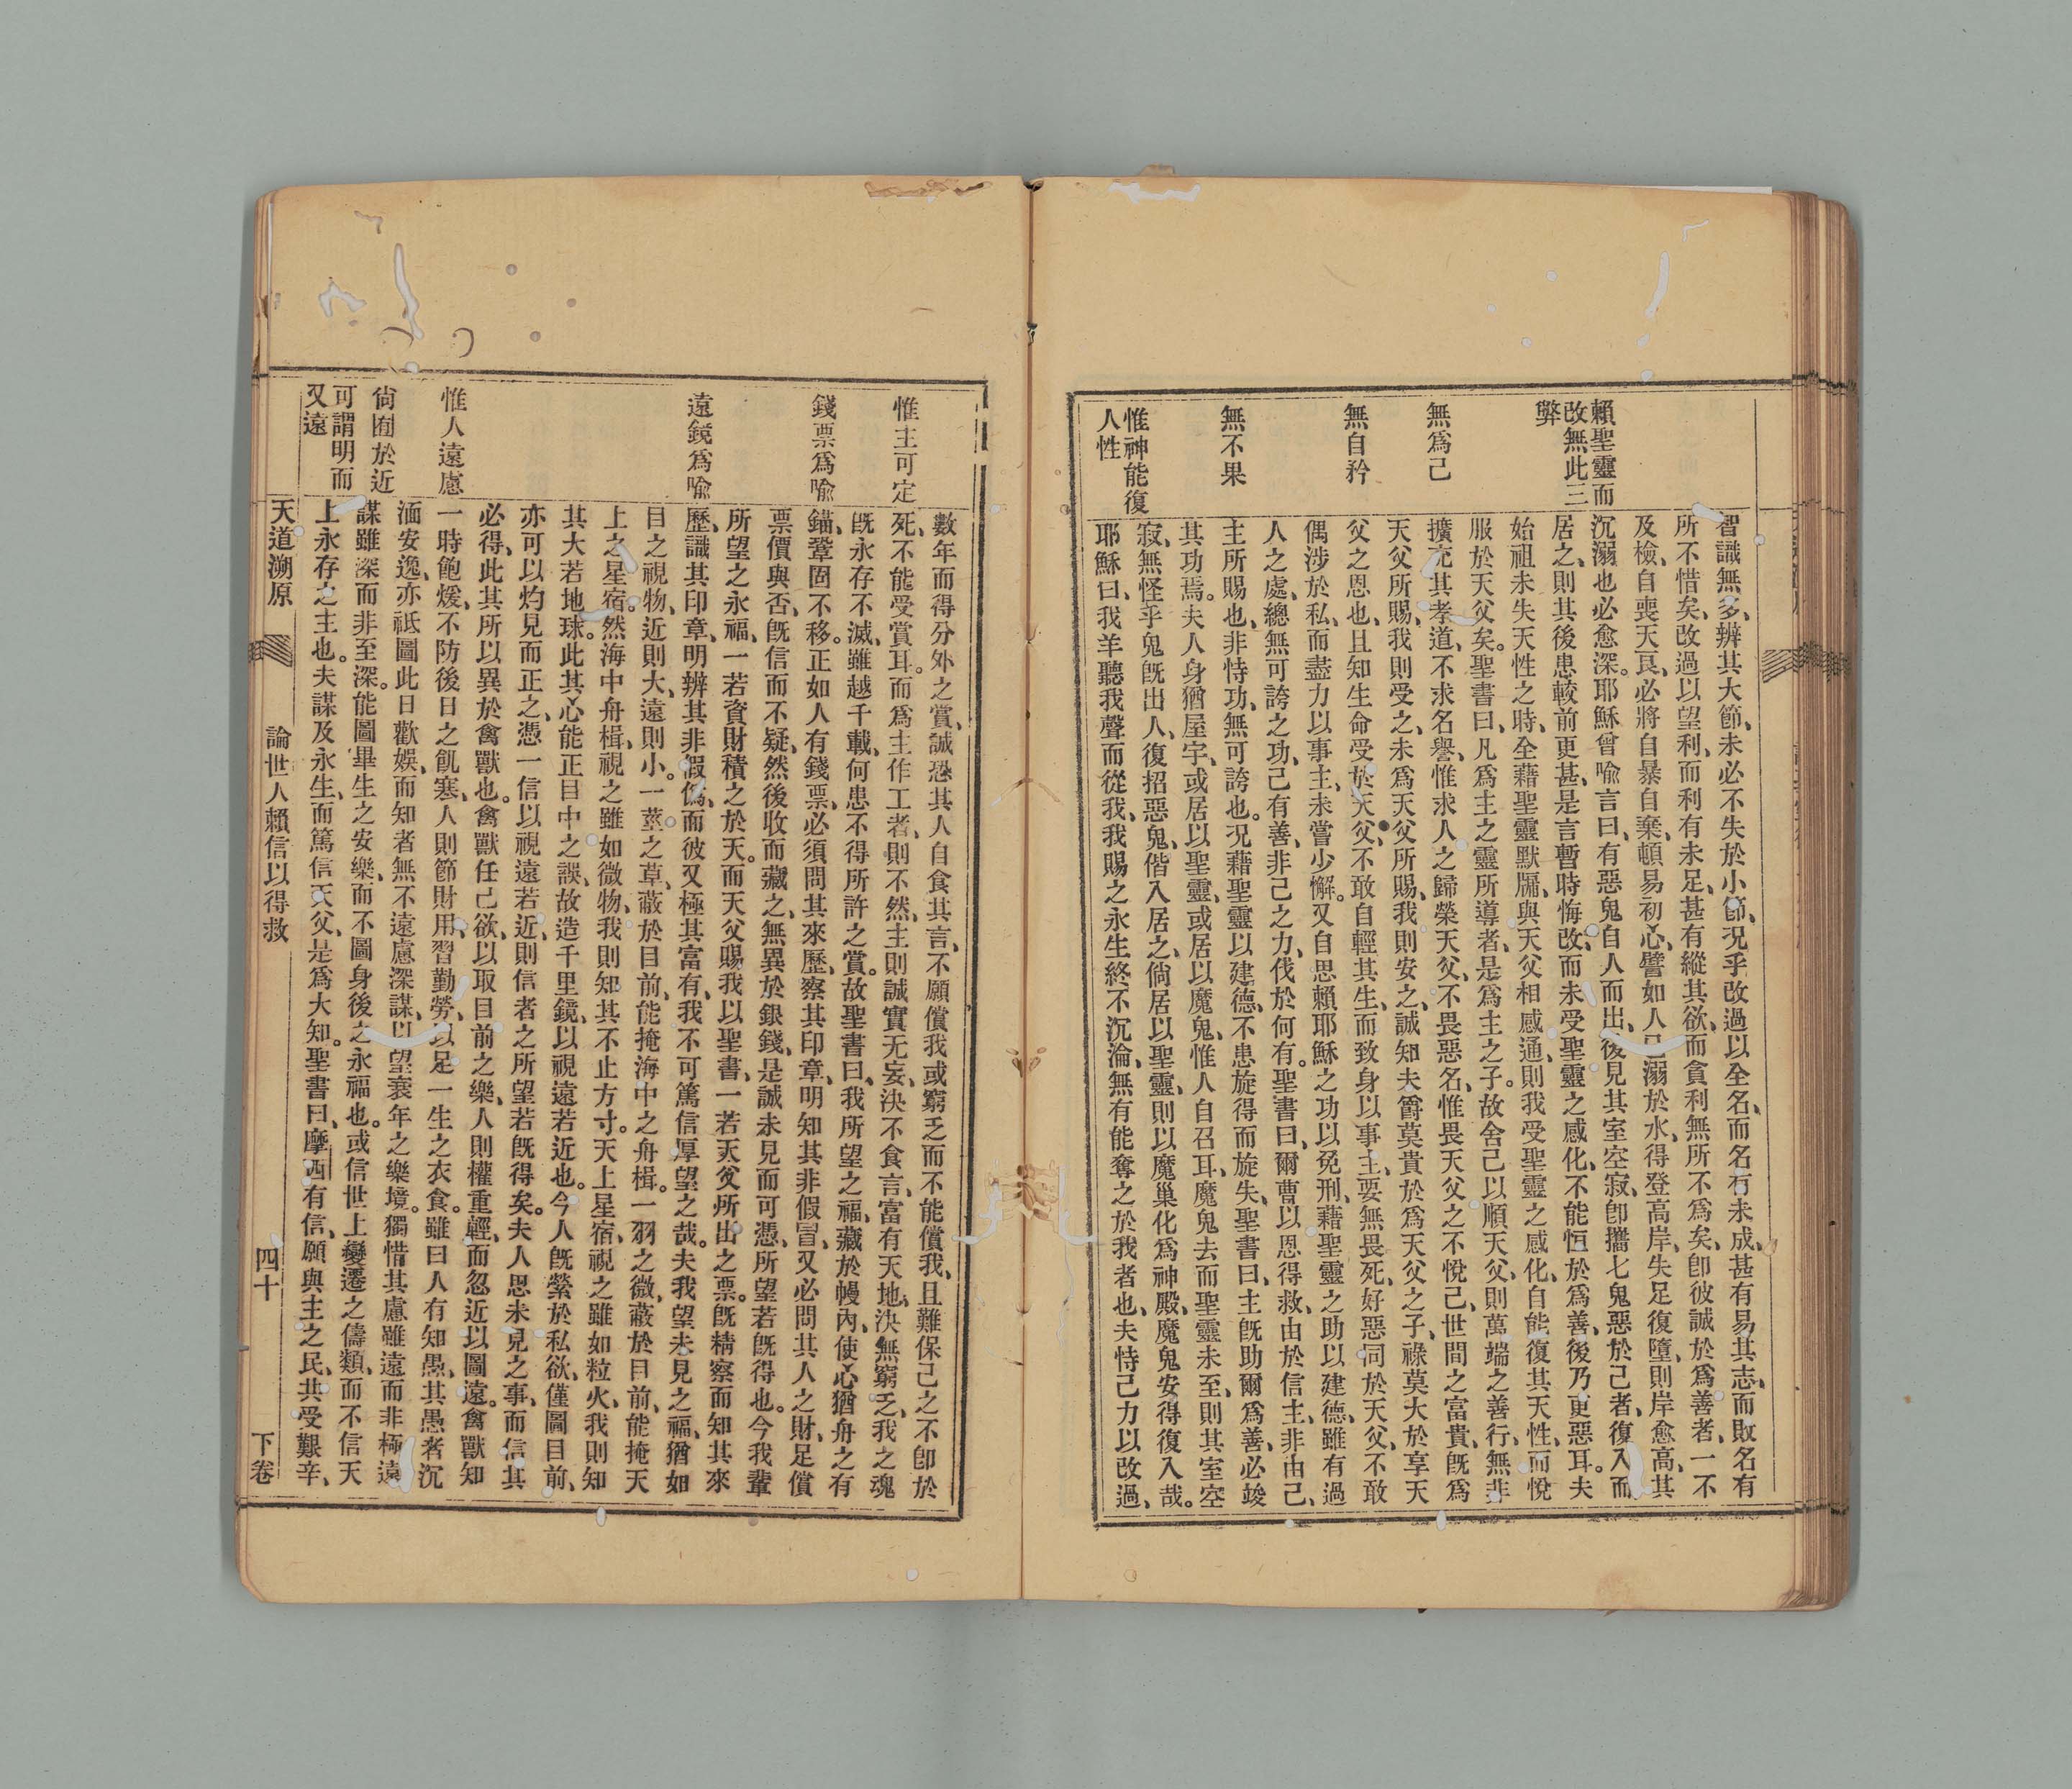 賴聖靈而
改無此三
弊
無爲己
無自矜
無不果
惟神能復
人性
智識無多、辨其大節、未必不失於小節、況乎改過以全名、而名有未成、甚有易其志、而敗名有
所不惜矣、改過以望利、而利有未足、甚有縱其欲、而貪利無所不爲矣、卽彼誠於爲善者、一不
及檢、自喪天良、必將自暴自棄、頓易初心、譬如人已溺於水、得登高岸、失足復墮、則岸愈高、其
沉溺也必愈深。耶穌曾喻言曰、有惡鬼自人而出、後見其室空寂、卽攜七鬼惡於己者、復入而
居之、則其後患較前更甚、是言暫時悔改、而未受聖靈之感化、不能恒於爲善、後乃更惡耳。夫
始祖未失天性之時、全藉聖靈默牖、與天父相感通、則我受聖靈之感化、自能復其天性、而悅
服於天父矣。聖書曰、凡爲主之靈所導者、是爲主之子。故舍己以順天父、則萬端之善行、無非
擴充其孝道、不求名譽、惟求人之歸榮天父、不畏惡名、惟畏天父之不悅己、世間之富貴、旣爲
天父所賜、我則受之、未爲天父所賜、我則安之、誠知夫爵莫貴於爲天父之子、祿莫大於享天
父之恩也、且知生命受於天父、不敢自輕其生、而致身以事主、要無畏死、好惡同於天父、不敢
偶涉於私、而盡力以事主、未嘗少懈。又自思賴耶穌之功以免刑、藉聖靈之助以建德、雖有過
人之處、總無可誇之功、己有善、非己之力、伐於何有。聖書曰、爾曹以恩得救、由於信主、非由己、
主所賜也、非恃功、無可誇也。況藉聖靈以建德、不患旋得而旋失、聖書曰、主旣助爾爲善、必竣
其功焉。夫人身猶屋宇、或居以聖靈、或居以魔鬼、惟人自召耳、魔鬼去而聖靈未至、則其室空
寂、無怪乎鬼旣出人、復招惡鬼、偕入居之、倘居以聖靈、則以魔巢化爲神殿、魔鬼安得復入哉。
耶穌曰、我羊聽我聲而從我、我賜之永生終不沉淪、無有能奪之於我者也、夫恃己力以改過、
惟主可定
錢票爲喻
遠鏡爲喻
惟人遠慮
倘囿於近
可謂明而
又遠
數年而得分外之賞、誠恐其人自食其言、不願償我或窮乏而不能償我、且難保己之不卽於
死、不能受賞耳。而爲主作工者、則不然、主則誠實无妄、決不食言、富有天地、決無窮乏、我之魂
旣永存不滅、雖越千載、何患不得所許之賞。故聖書曰、我所望之福、藏於幔內、使心猶舟之有
錨、鞏固不移。正如人有錢票、必須問其來歷、察其印章、明知其非假冒、又必問其人之財、足償
票價與否、旣信而不疑、然後收而藏之、無異於銀錢、是誠未見而可憑、所望若旣得也。今我輩
所望之永福、一若資財積之於天。而天父賜我以聖書、一若天父所出之票。旣精察而知其來
歷、識其印章、明辨其非假僞、而彼又極其富有、我不可篤信厚望之哉。夫我望未見之福、猶如
目之視物、近則大、遠則小。一莖之草、蔽於目前、能掩海中之舟楫。一羽之微、蔽於目前、能掩天
上之星宿。然海中舟楫、視之雖如微物、我則知其不止方寸。天上星宿、視之雖如粒火、我則知
其大若地球。此其心能正目中之誤、故造千里鏡、以視遠若近也。今人旣縈於私欲、僅圖目前、
亦可以灼見而正之、憑一信以視遠若近、則信者之所望若旣得矣。夫人思未見之事、而信其
必得、此其所以異於禽獸也。禽獸任己欲、以取目前之樂、人則權重輕、而忽近以圖遠。禽獸知
一時飽煖、不防後日之飢寒、人則節財用、習勤勞、以足一生之衣食。雖曰人有知愚、其愚者沉
湎安逸、亦祗圖此日歡娛、而知者無不遠慮深謀、以望衰年之樂境。獨惜其慮雖遠而非極遠、
謀雖深而非至深。能圖畢生之安樂、而不圖身後之永福也。或信世上變遷之儔類、而不信天
上永存之主也。夫謀及永生、而篤信天父、是爲大知。聖書曰、摩西有信、願與主之民、共受艱辛、
天道溯原 論世人賴信以得救 四十 下卷